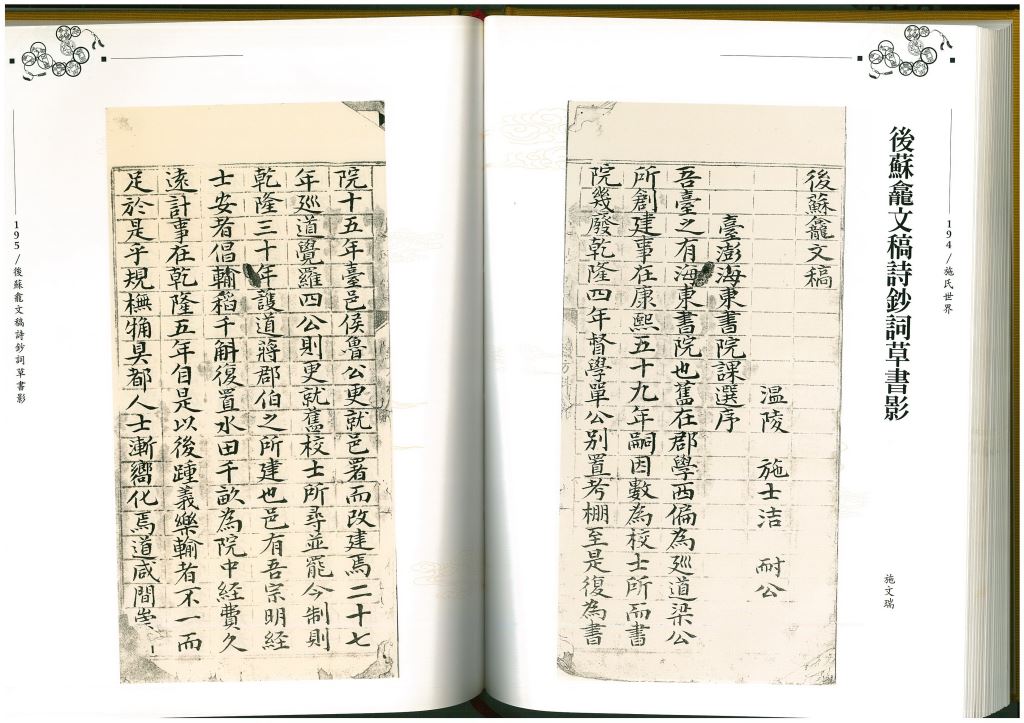 後蘇龕文稿詩鈔詞草書影
施文瑞
194／施氏世界
後蘇龕文稿
溫陵 施士洁 耐公
臺澎海東書院課選序
吾臺之有海東書院也舊在郡學西偏為廵道梁公
所創建事在康熙五十九年嗣因數為校士所而書
院幾廢乾隆四年督學單公別置考棚至是復為書
院十五年臺邑侯魯公更就邑署而改建焉二十七
年廵道覺羅四公則更就舊校士所尋並罷今制則
乾隆三十年護道蔣郡伯之所建也邑有吾宗明經
士安者倡輸稻千斛復置水田千畝為院中経費久
遠計事在乾隆五年自是以後踵義樂輸者不一而
足於是乎規橅觕具都人士漸嚮化焉道咸間
195／後蘇龕文稿詩鈔詞草書影